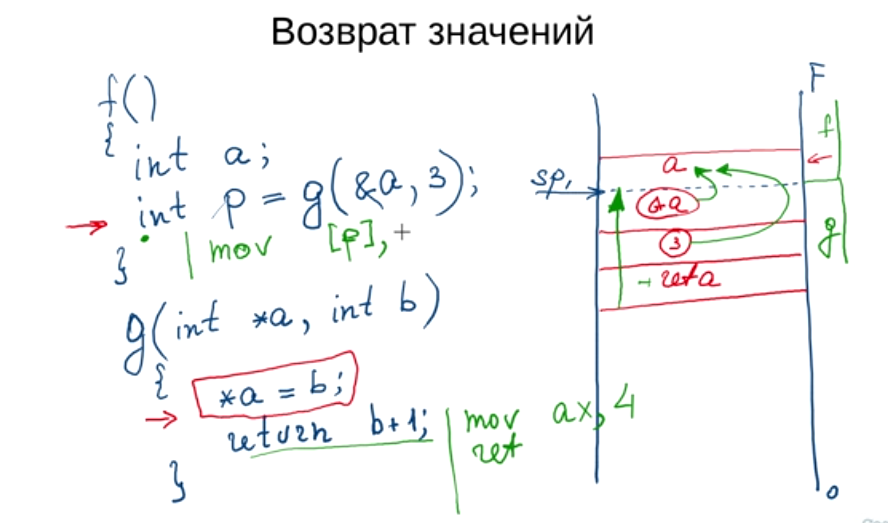 Возврат значений
f()
{ int a;
int p = g(&a, 3);
mov [p],
}
g(int *a, int b)
{
*a = b;
return b+1;
}
mov ax, 4
ret
F
f
a
sp,
&a
g
3
ret a
0